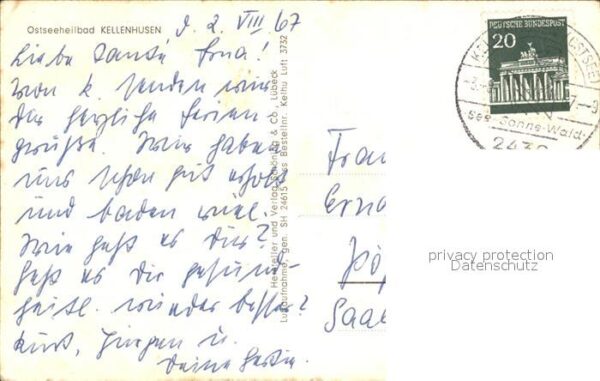 Ostseeheilbad KELLENHUSEN
d. 2. VIII 67
Liebe Tante Erna!
Von K. senden wir
dir herzliche Ferien-
grüße. Wir haben
uns schon gut erholt
und baden viel.
Wie geht es Dir?
Geht es Dir gesund-
heitl. wieder besser?
Kurt, Jürgen u.
Deine
Hersteller und Verlag Schöning & Co., Lübeck
Luftaufnahme, gen. SH 24615 Bestellnr. Kelhu Luft 3732
DEUTSCHE BUNDESPOST
20
2436
Frau
Erna
Saa
privacy protection
Datenschutz